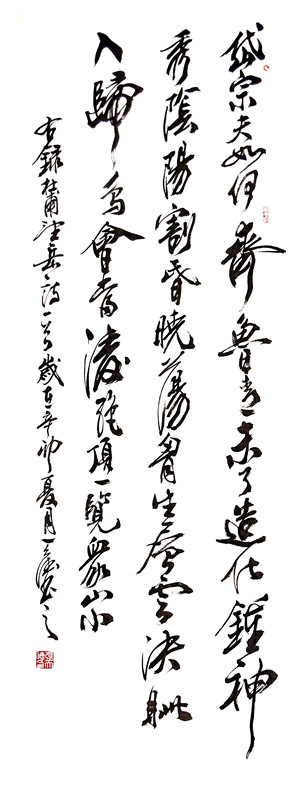 岱宗夫如何齊魯青未了造化鍾神
秀陰陽割昏曉蕩胷生曾雲決眦
入歸鳥會當淩絕頂一覽衆山小
右錄杜甫望岳詩一首歲在辛卯夏月一之